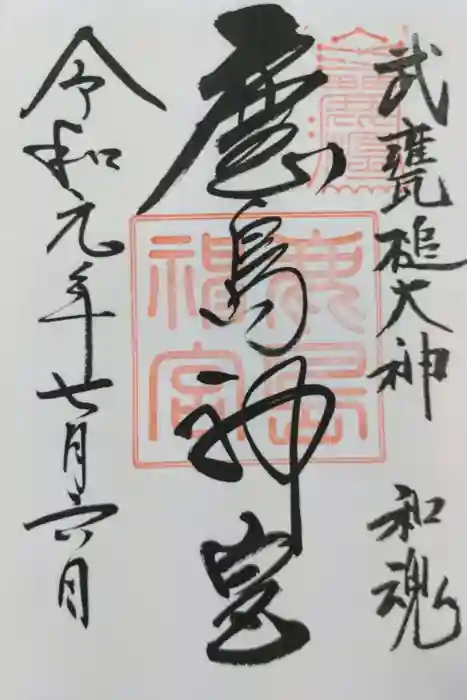 武甕槌大神 和魂
鹿島神宮
令和元年七月六日
鹿島
神宮